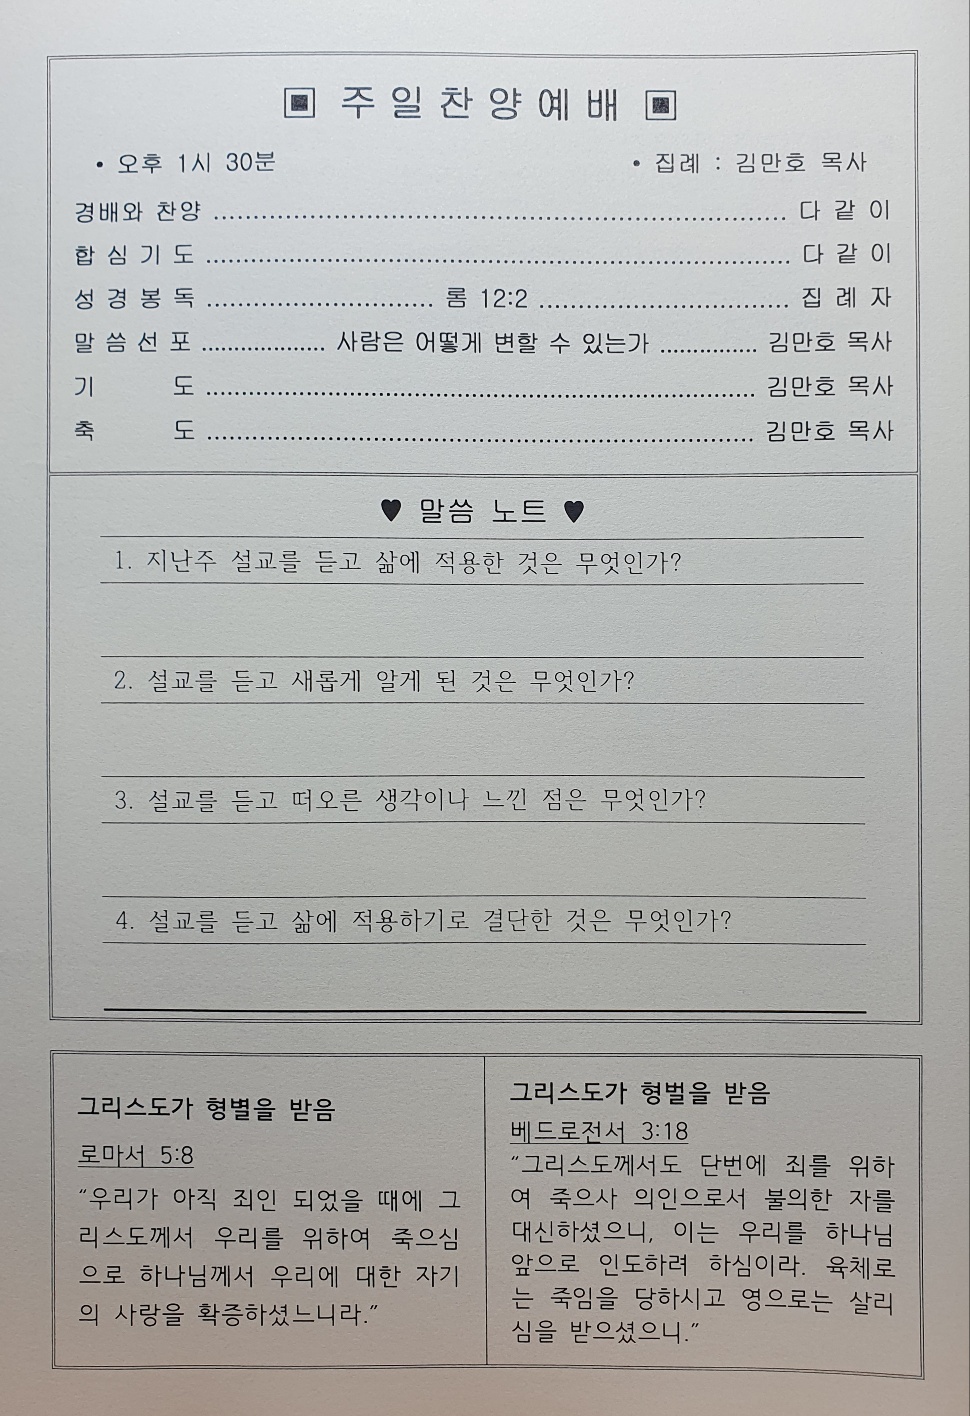 ▣ 주 일 찬 양 예 배 ▣
• 오후 1시 30분 • 집례 : 김만호 목사
경배와 찬양 ........................................ 다 같 이
합 심 기 도 ........................................ 다 같 이
성 경 봉 독 .................... 롬 12:2 .................... 집 례 자
말 씀 선 포 .......... 사람은 어떻게 변할 수 있는가 .......... 김만호 목사
기 도 ........................................ 김만호 목사
축 도 ........................................ 김만호 목사
♥ 말씀 노트 ♥
1. 지난주 설교를 듣고 삶에 적용한 것은 무엇인가?
2. 설교를 듣고 새롭게 알게 된 것은 무엇인가?
3. 설교를 듣고 떠오른 생각이나 느낀 점은 무엇인가?
4. 설교를 듣고 삶에 적용하기로 결단한 것은 무엇인가?
그리스도가 형별을 받음
로마서 5:8
"우리가 아직 죄인 되었을 때에 그
리스도께서 우리를 위하여 죽으심
으로 하나님께서 우리에 대한 자기
의 사랑을 확증하셨느니라."
그리스도가 형벌을 받음
베드로전서 3:18
"그리스도께서도 단번에 죄를 위하
여 죽으사 의인으로서 불의한 자를
대신하셨으니, 이는 우리를 하나님
앞으로 인도하려 하심이라. 육체로
는 죽임을 당하시고 영으로는 살리
심을 받으셨으니."